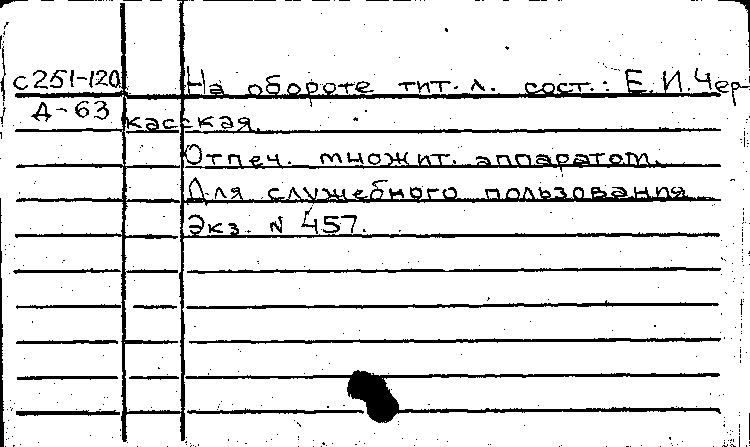 с251-120 На обороте тит. л. сост.: Е.И.Чер-
Д-63 касская.
Отпеч. множит. аппаратом.
Для служебного пользования
Экз. N 457.